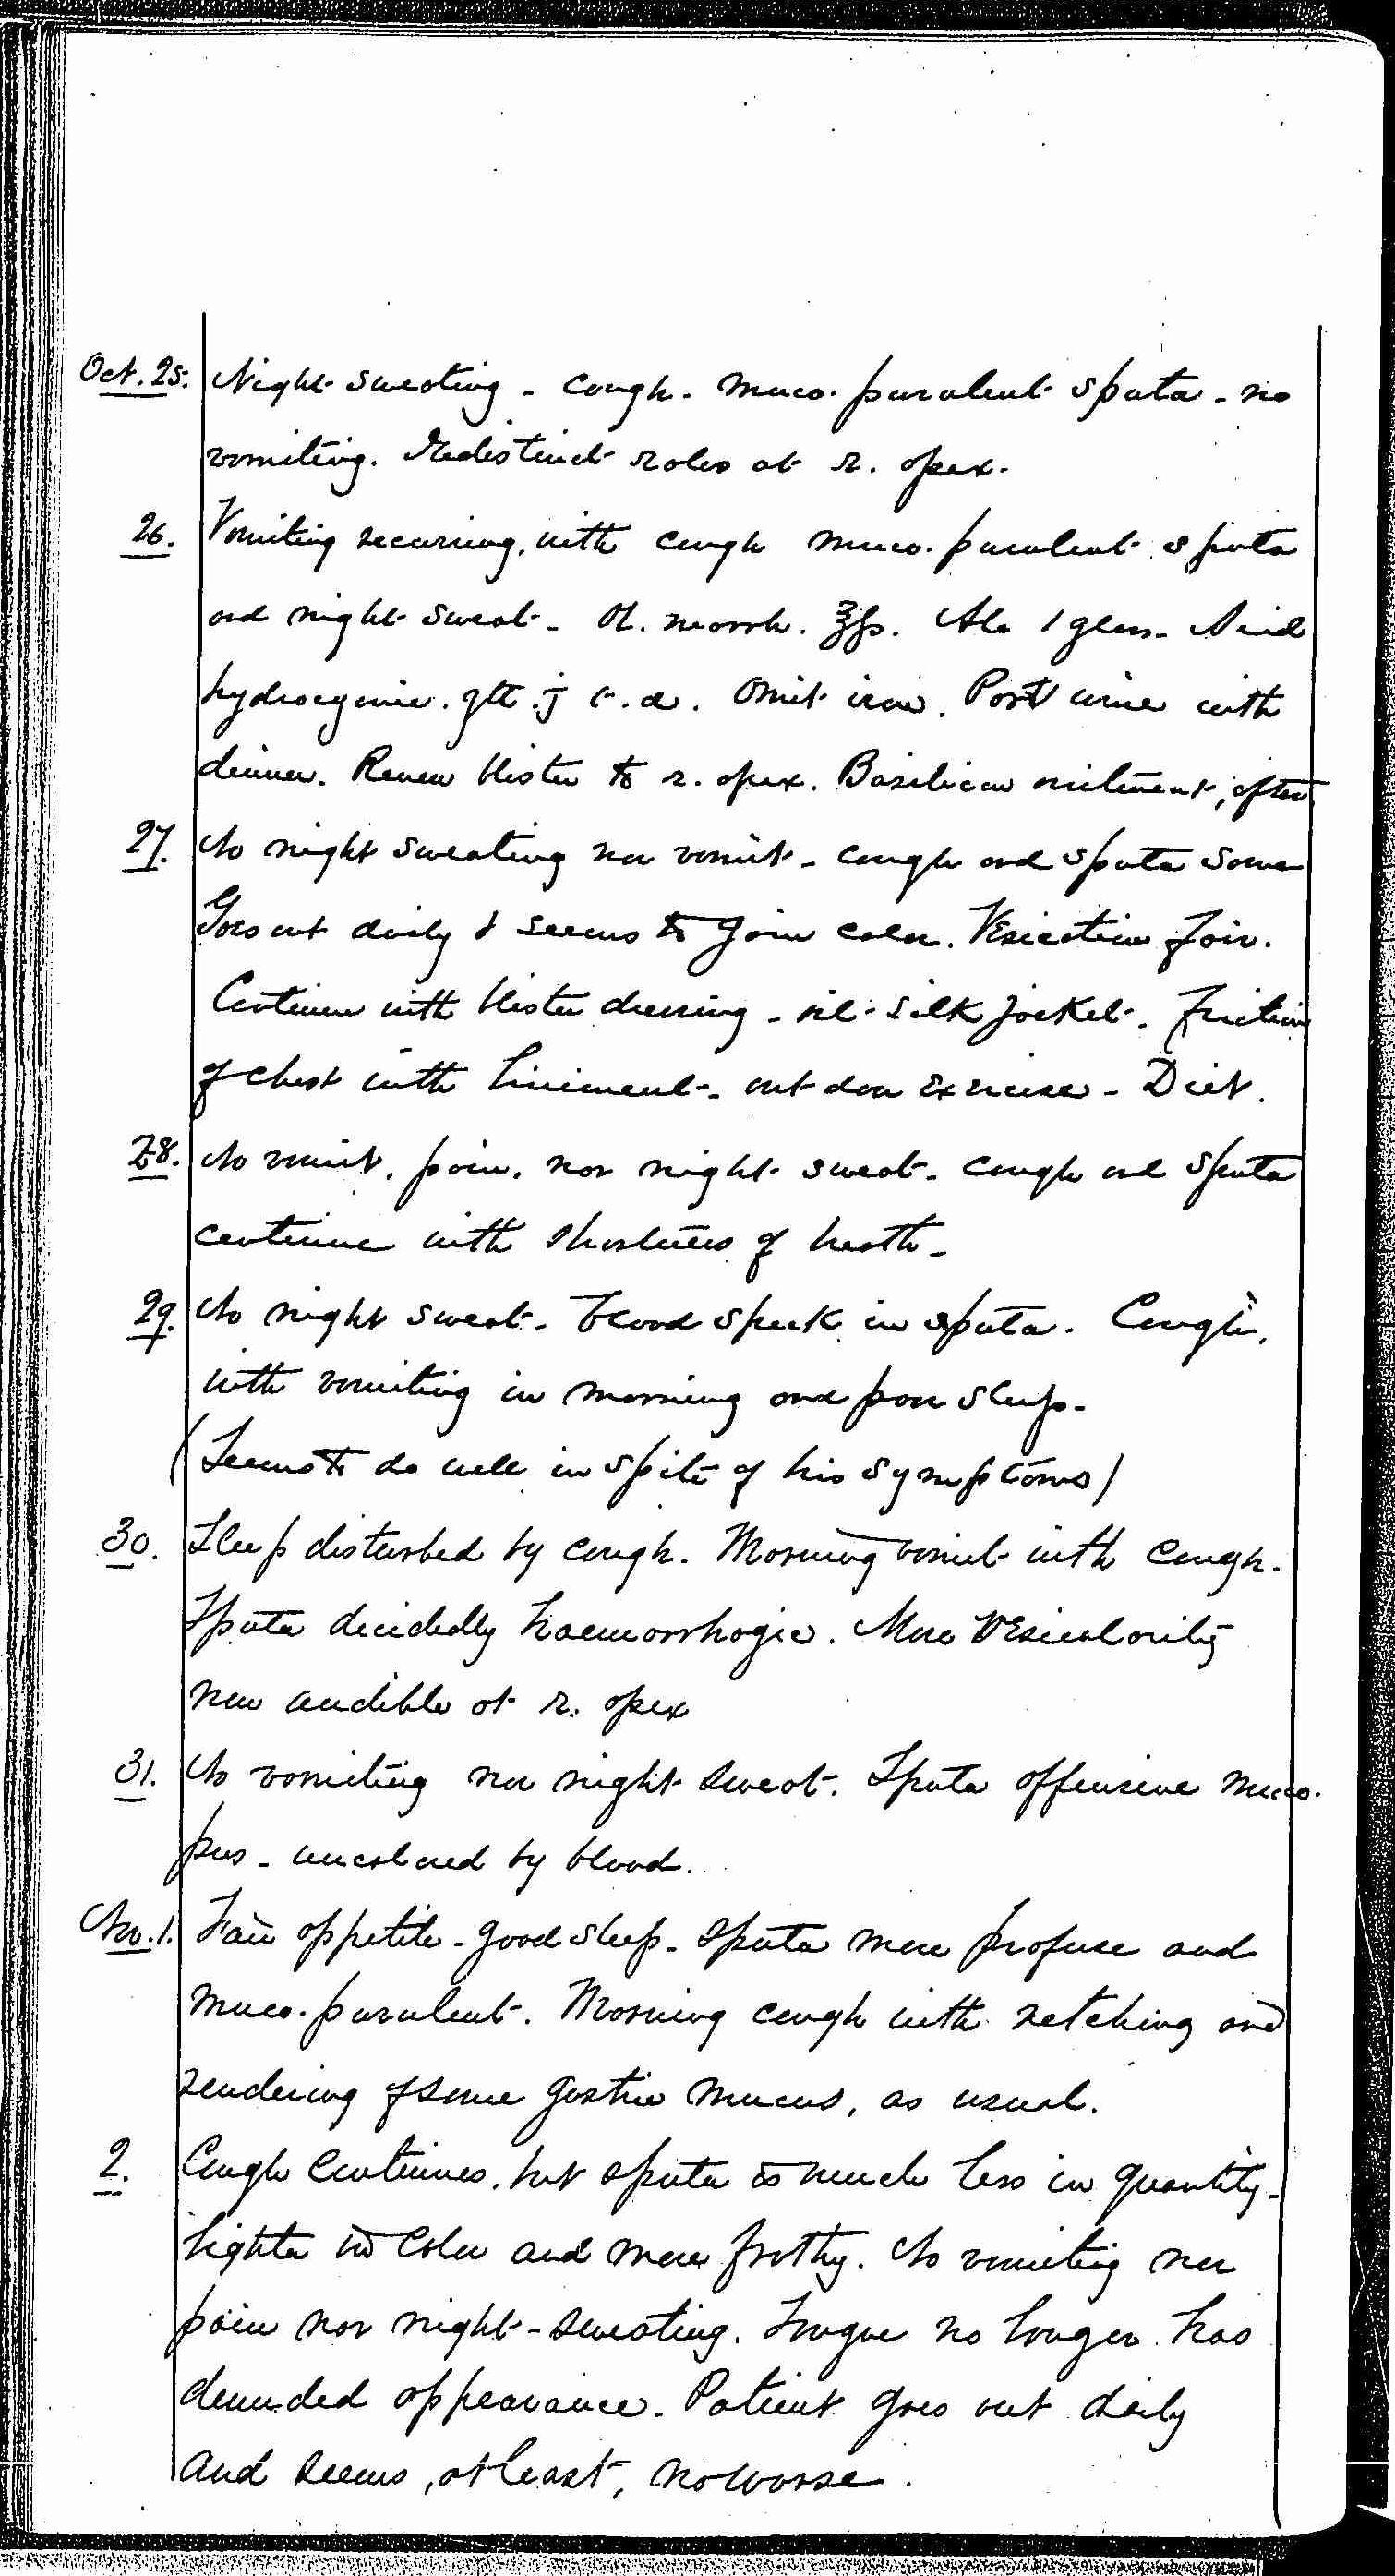 Oct. 25. Night sweating - cough - muco-purulent sputa - no
vomiting. Indistinct rales at r. apex.
26. Vomiting recurring, with cough muco-purulent sputa
and night sweat - Ol. morrh. ℥ss. Ale 1 glass - Acid
hydrocyanic. gtt. j t.d. Omit iron. Port wine with
dinner. Renew blister to r. apex. Basilicon ointment, after
27. No night sweating nor vomit - cough and sputa same
Goes out daily & seems to gain color. Vesication fair.
Continue with blister dressing - oil-silk jacket. Friction
of chest with liniment - out door exercise - Diet.
28. No vomit, pain, nor night sweat - cough and sputa
continue with shortness of breath -
29. No night sweat - blood speck in sputa. Cough,
with vomiting in morning and poor sleep -
(Seems to do well in spite of his symptoms)
30. Sleep disturbed by cough. Morning vomit with cough.
Sputa decidedly haemorrhagic. More vesicularity
now audible at r. apex
31. No vomiting nor night sweat. Sputa offensive muco-
pus - uncolored by blood.
Nov. 1. Fair appetite - good sleep - sputa more profuse and
muco-purulent. Morning cough with retching and
rendering of some gastric mucus, as usual.
2. Cough continues, but sputa is much less in quantity -
lighter in color and more frothy. No vomiting nor
pain nor night-sweating. Tongue no longer has
denuded appearance. Patient goes out daily
and seems, at least, no worse.